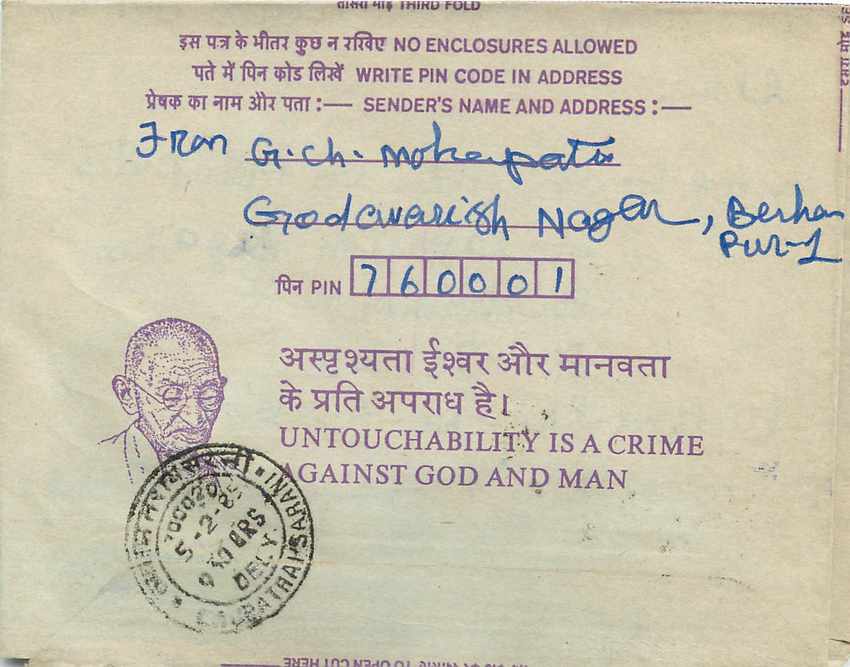 तीसरा मोड़ THIRD FOLD
इस पत्र के भीतर कुछ न रखिए NO ENCLOSURES ALLOWED
पते में पिन कोड लिखें WRITE PIN CODE IN ADDRESS
प्रेषक का नाम और पता :— SENDER'S NAME AND ADDRESS :—
From G. Ch. Mohapatra
Godavarish Nagar, Berham
pur-1
पिन PIN 760001
अस्पृश्यता ईश्वर और मानवता
के प्रति अपराध है।
UNTOUCHABILITY IS A CRIME
AGAINST GOD AND MAN
LAJPATRAI SARANI
5-2-8
DELY
TO OPEN CUT HERE